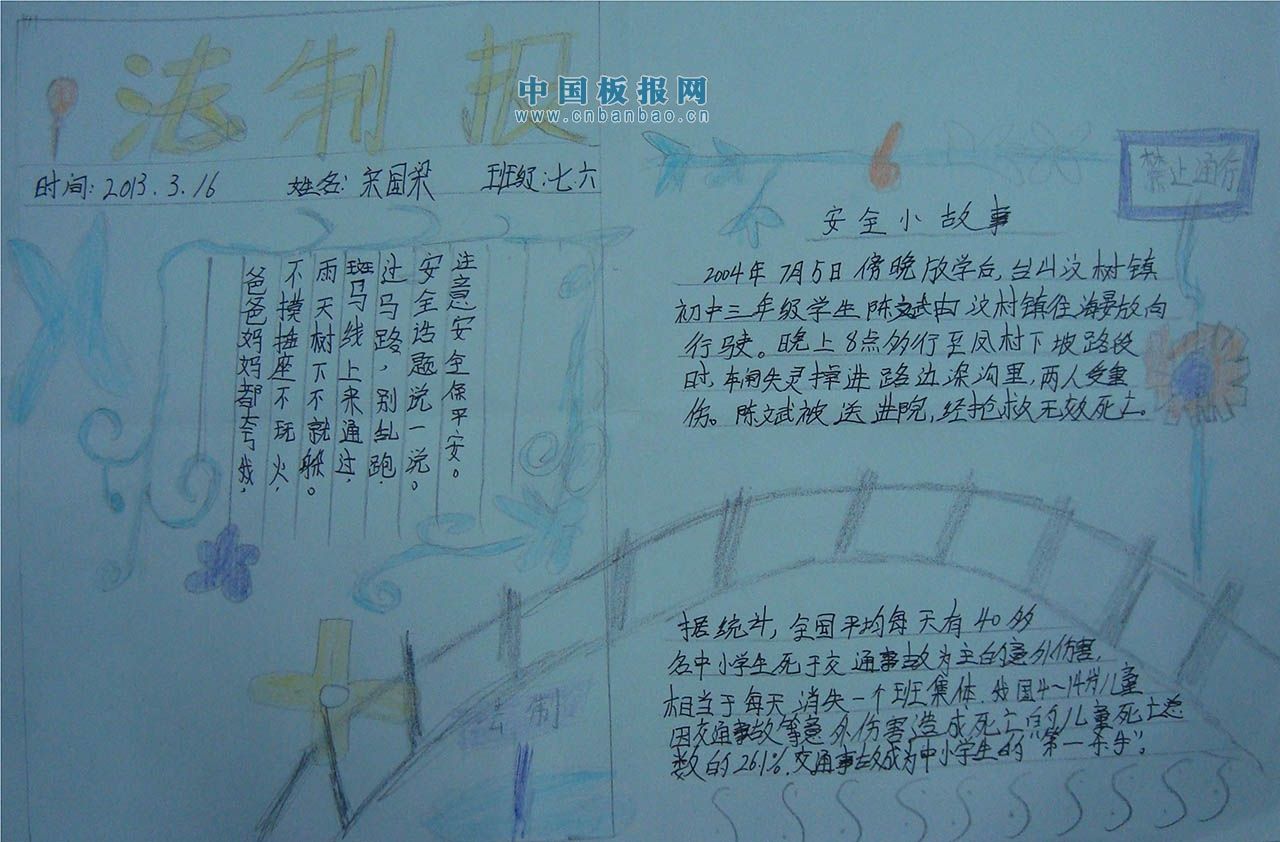 法制报
中国板报网
www.cnbanbao.cn
时间:2013.3.16 姓名:宋国梁 班级:七六
注意安全保平安。
安全话题说一说。
过马路,别乱跑,
斑马线上来通过,
雨天树下不就躲。
不摸插座不玩火,
爸爸妈妈都夸我,
禁止通行
安全小故事
2004年7月5日傍晚放学后,台山汶村镇
初中三年级学生陈文武由汶村镇往海晏放向
行驶。晚上8点多行至凤村下坡路段
时,车闸失灵掉进路边深沟里,两人受重
伤。陈文武被送进院,经抢救无效死亡。
据统计,全国平均每天有40多
名中小学生死于交通事故为主的意外伤害,
相当于每天消失一个班集体.我国4~14岁儿童
因交通事故等意外伤害造成死亡的儿童死亡总
数的26.1%.交通事故成为中小学生的"第一杀手"。
法制